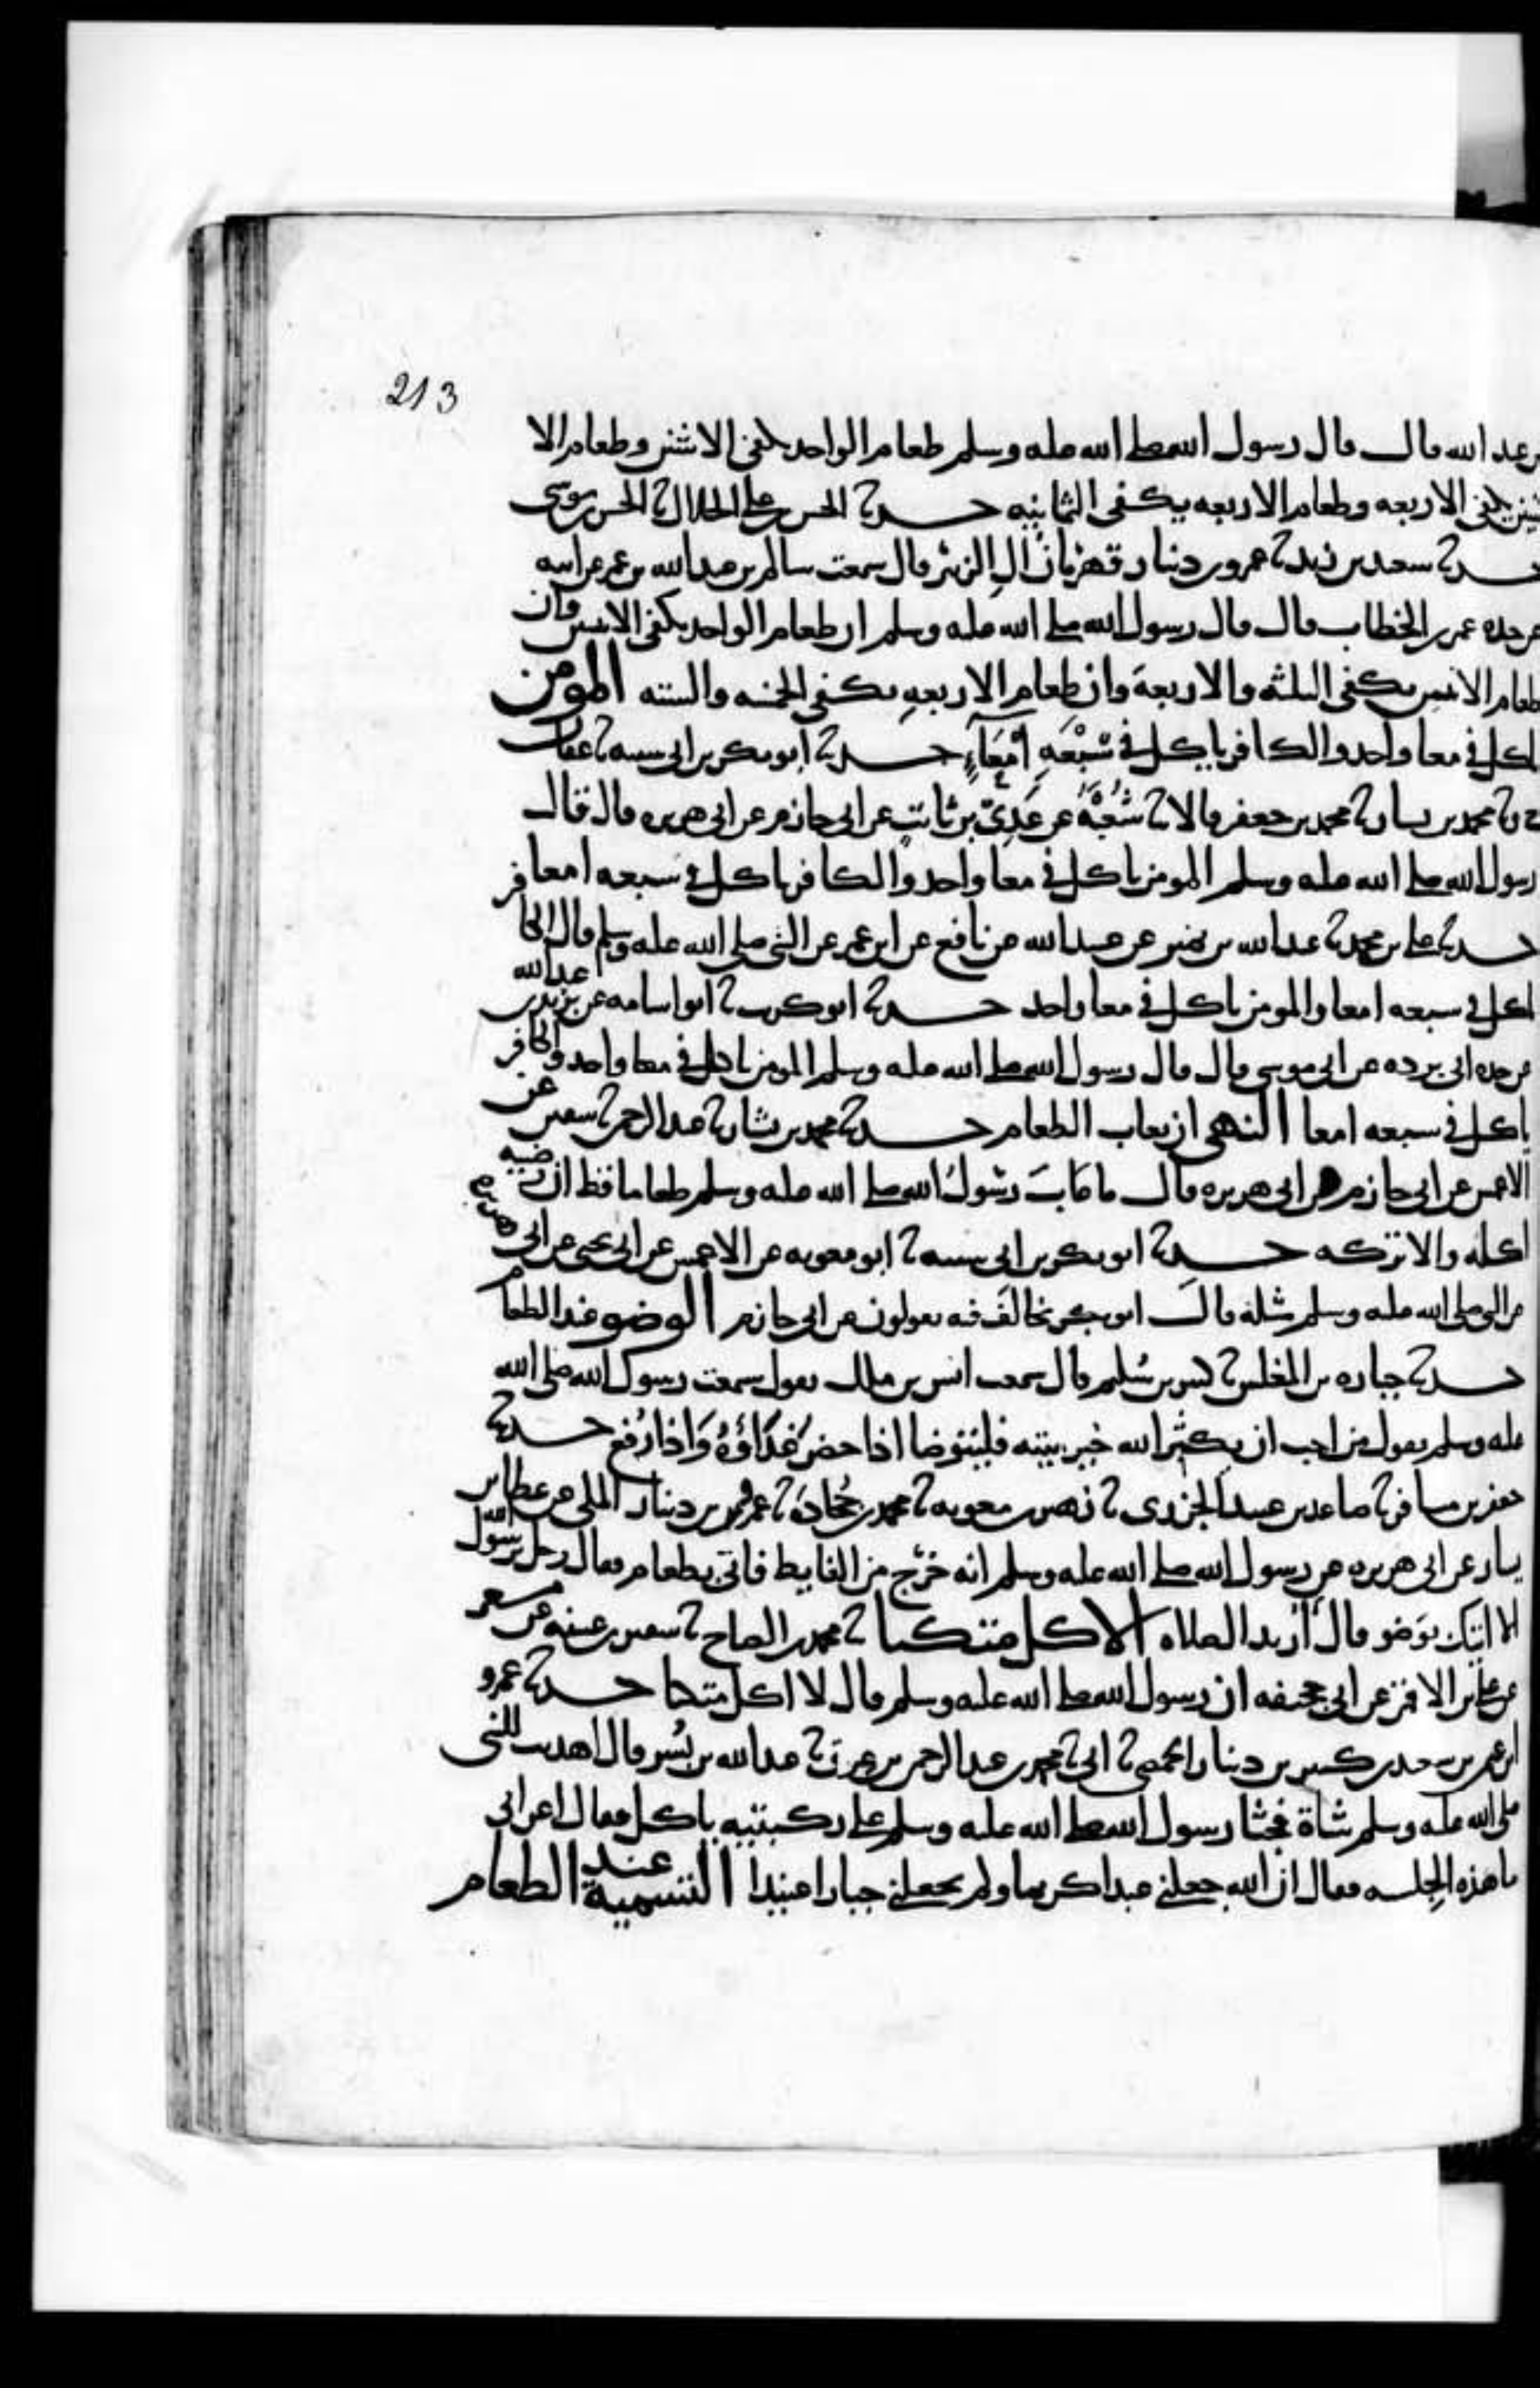 213
بن عبد الله قال قال رسول الله صلى الله عليه وسلم طعام الواحد يكفى الاثنين وطعام الا
ثنين يكفى الاربعه وطعام الاربعه يكفى الثمانيه حدثنا الحسن بن على الخلال ثنا الحسن بن موسى
حدثنا سعيد بن زيد ثنا عمرو بن دينار قهرمان آل الزبير قال سمعت سالم بن عبد الله بن عمر عن ابيه
عن جده عمر بن الخطاب قال قال رسول الله صلى الله عليه وسلم ان طعام الواحد يكفى الاثنين وان
طعام الاثنين يكفى الثلثه والاربعة وان طعام الاربعه يكفى الخمسه والسته المومن
ياكل فى معا واحد والكافر ياكل فى سبعه امعاء حدثنا ابو بكر بن ابى شيبه ثنا عفان
ح وثنا محمد بن بشار ثنا محمد بن جعفر قالا ثنا شعبة عن عدى بن ثابت عن ابى حازم عن ابى هريره قال قال
رسول الله صلى الله عليه وسلم المومن ياكل فى معا واحد والكافر ياكل فى سبعه امعا
حدثنا على بن محمد ثنا عبد الله بن نمير عن عبيد الله عن نافع عن ابن عمر عن النبى صلى الله عليه وسلم قال الكافر
ياكل فى سبعه امعا والمومن ياكل فى معا واحد حدثنا ابو كريب ثنا ابو اسامه عن بريد بن عبد الله
عن جده ابى برده عن ابى موسى قال قال رسول الله صلى الله عليه وسلم المومن ياكل فى معا واحد والكافر
ياكل فى سبعه امعا النهى ان يعاب الطعام حدثنا محمد بن بشار ثنا عبد الرحمن ثنا سفين عن
الاعمش عن ابى حازم عن ابى هريره قال ما عاب رسول الله صلى الله عليه وسلم طعاما قط ان رضيه
اكله والا تركه حدثنا ابو بكر بن ابى شيبه ثنا ابو معويه عن الاعمش عن ابى يحيى عن ابى هريره
عن النبى صلى الله عليه وسلم مثله قال ابو بكر نخالف فيه يقولون عن ابى حازم الوضو عند الطعام
حدثنا جباره بن المغلس ثنا كثير بن سليم قال سمعت انس بن ملك يقول سمعت رسول الله صلى الله
عليه وسلم يقول من احب ان يكثر الله خير بيته فليتوضا اذا حضر غداؤه واذا رفع حدثنا
جعفر بن مسافر ثنا صاعد بن عبيد الجزرى ثنا زهير بن معويه ثنا محمد بن جحادة ثنا عمرو بن دينار المكى عن عطا بن
يسار عن ابى هريره عن رسول الله صلى الله عليه وسلم انه خرج من الغايط فاتى بطعام فقال رجل يرسول الله
الا اتيك بوضو قال أأريد الصلاه الاكل متكيا ثنا محمد بن الصباح ثنا سفين بن عيينه عن مسعر
عن على بن الاقمر عن ابى جحيفه ان رسول الله صلى الله عليه وسلم قال لا اكل متكا حدثنا عمرو
ابن عثمن بن سعيد بن كثير بن دينار الحمصى ثنا ابى ثنا محمد بن عبد الرحمن بن عرق ثنا عبد الله بن بسر قال اهديت للنبى
صلى الله عليه وسلم شاة فجثا رسول الله صلى الله عليه وسلم على ركبتيه ياكل فقال اعرابى
ما هذه الجلسه فقال ان الله جعلنى عبدا كريما ولم يجعلنى جبارا عنيدا التسمية عند الطعام